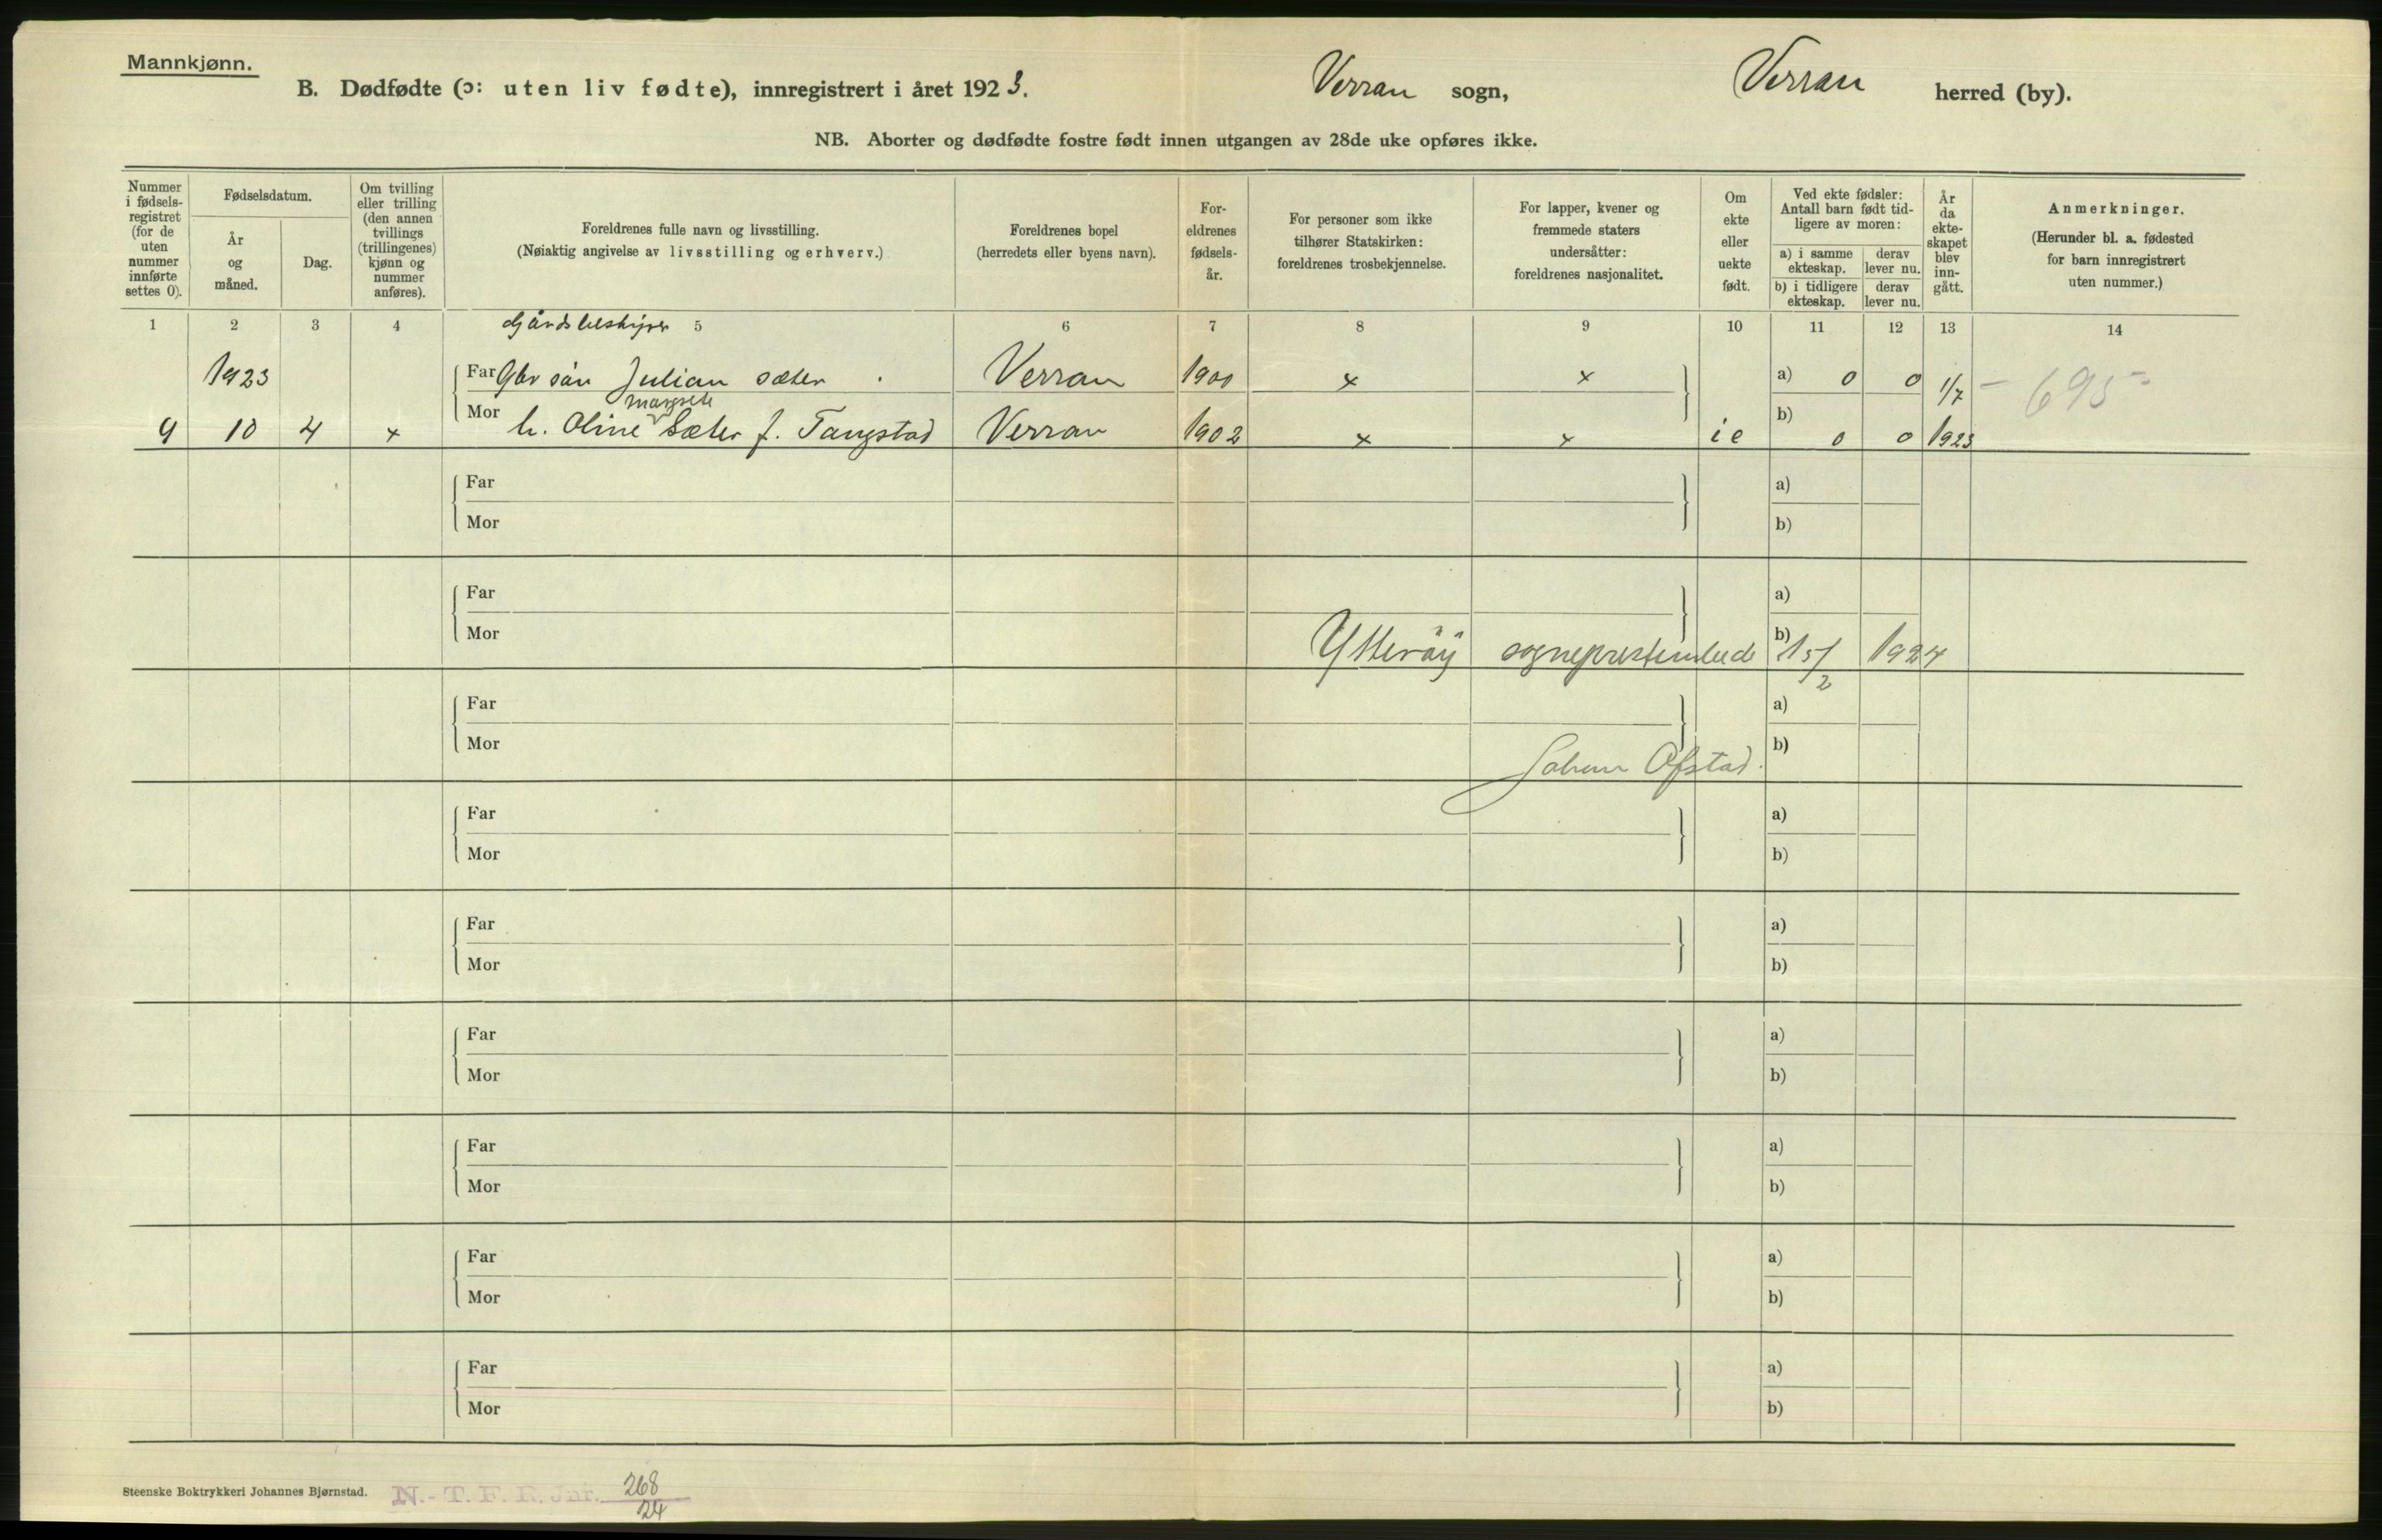 Mannkjønn.
B. Dødfødte (ɔ: uten liv fødte), innregistrert i året 1923. Verran sogn, Verran herred (by).
NB. Aborter og dødfødte fostre født innen utgangen av 28de uke opføres ikke.
Nummer i fødselsregistret (for de uten nummer innførte settes 0).
Fødselsdatum.
År og måned.
Dag.
Om tvilling eller trilling (den annen tvillings (trillingenes) kjønn og nummer anføres).
Foreldrenes fulle navn og livsstilling.
(Nøiaktig angivelse av livsstilling og erhverv.)
Foreldrenes bopel
(herredets eller byens navn).
Foreldrenes fødselsår.
For personer som ikke tilhører Statskirken: foreldrenes trosbekjennelse.
For lapper, kvener og fremmede staters undersåtter: foreldrenes nasjonalitet.
Om ekte eller uekte født.
Ved ekte fødsler: Antall barn født tidligere av moren:
a) i samme ekteskap. derav lever nu.
b) i tidligere ekteskap. derav lever nu.
År da ekteskapet blev inngått.
Anmerkninger.
(Herunder bl. a. fødested for barn innregistrert uten nummer.)
1 2 3 4 5 6 7 8 9 10 11 12 13 14
1923 Far Julian sæter Verran 1900 x x a) 0 0 1/7 695
Margrete
9 10 4 x Mor h. Oline Sæter f. Tangstad Verran 1902 x x ie b) 0 0 1923
Far a)
Mor b)
Far a)
Mor b)
Ytterøy sogneprestembede 15/2 1924
Far a)
Mor b)
Johan Ofstad.
Far a)
Mor b)
Far a)
Mor b)
Far a)
Mor b)
Far a)
Mor b)
Far a)
Mor b)
Far a)
Mor b)
Steenske Boktrykkeri Johannes Bjørnstad.
N.-T. F. R. Jnr. 268/24